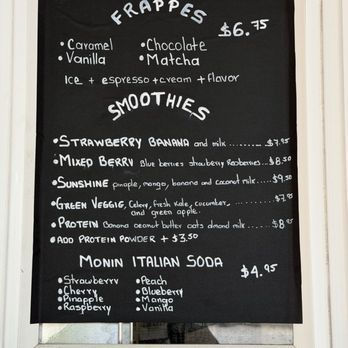 FRAPPES
$6.75
• Caramel • Chocolate
• Vanilla • Matcha
Ice + espresso + cream + flavor
SMOOTHIES
• STRAWBERRY BANANA and milk ......... $7.95
• MIXED BERRY Blue berries strawberry Rasberries... $8.50
• SUNSHINE pinaple, mango, banana and coconut milk... $9.50
• GREEN VEGGIG, Celery, fresh Kale, cucumber ...... $7.95
and green apple.
• PROTEIN Banana peanut butter oats almond milk ... $8.95
• ADD PROTEIN POWDER + $3.50
MONIN ITALIAN SODA
$4.95
• Strawberry • Peach
• Cherry • Blueberry
• Pinapple • Mango
• Raspberry • Vanilla